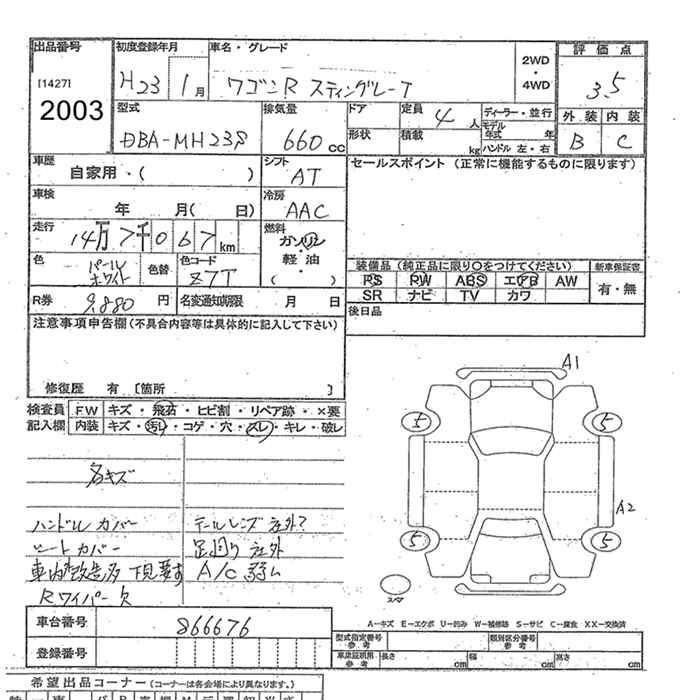 出品番号 初度登録年月 車名・グレード 評価点
[1427] H23 1月 ワゴンR スティングレーT 2WD・4WD 3.5
2003 型式 排気量 ドア 定員 4人 ディーラー・並行 外装 内装
DBA-MH23S 660cc 形状 積載 kg モデル年式 年 ハンドル 左・右 B C
車歴 自家用・( ) シフト AT セールスポイント (正常に機能するものに限ります)
車検 年 月( 日) 冷房 AAC
走行 14万7千067km 燃料 ガソリン・軽油 ( )
色 パールホワイト 色替 色コード Z7T 装備品 (純正品に限り○をつけてください) 新車保証書
PS PW ABS エアB AW 有・無
R券 9,880円 名変通知期限 月 日 SR ナビ TV カワ
注意事項申告欄(不具合内容等は具体的に記入して下さい) 後日品
修復歴 有 [箇所 ]
A1
検査員 FW キズ・飛石・ヒビ割・リペア跡・×要
記入欄 内装 キズ・汚レ・コゲ・穴・スレ・キレ・破レ
5 5
各キズ
A2
ハンドルカバー テールレンズ社外?
シートカバー 足廻り社外
5 5
車内改造多 下見要す A/C 弱い
Rワイパー欠
スマ
A-キズ E-エクボ U-凹み W-補修跡 S-サビ C-腐食 XX-交換済
車台番号 866676
型式指定番号 参考 類別区分番号 参考
登録番号 車庫証明用 参考 長さ cm 幅 cm 高さ cm
希望出品コーナー(コーナーは各会場により異なります。)